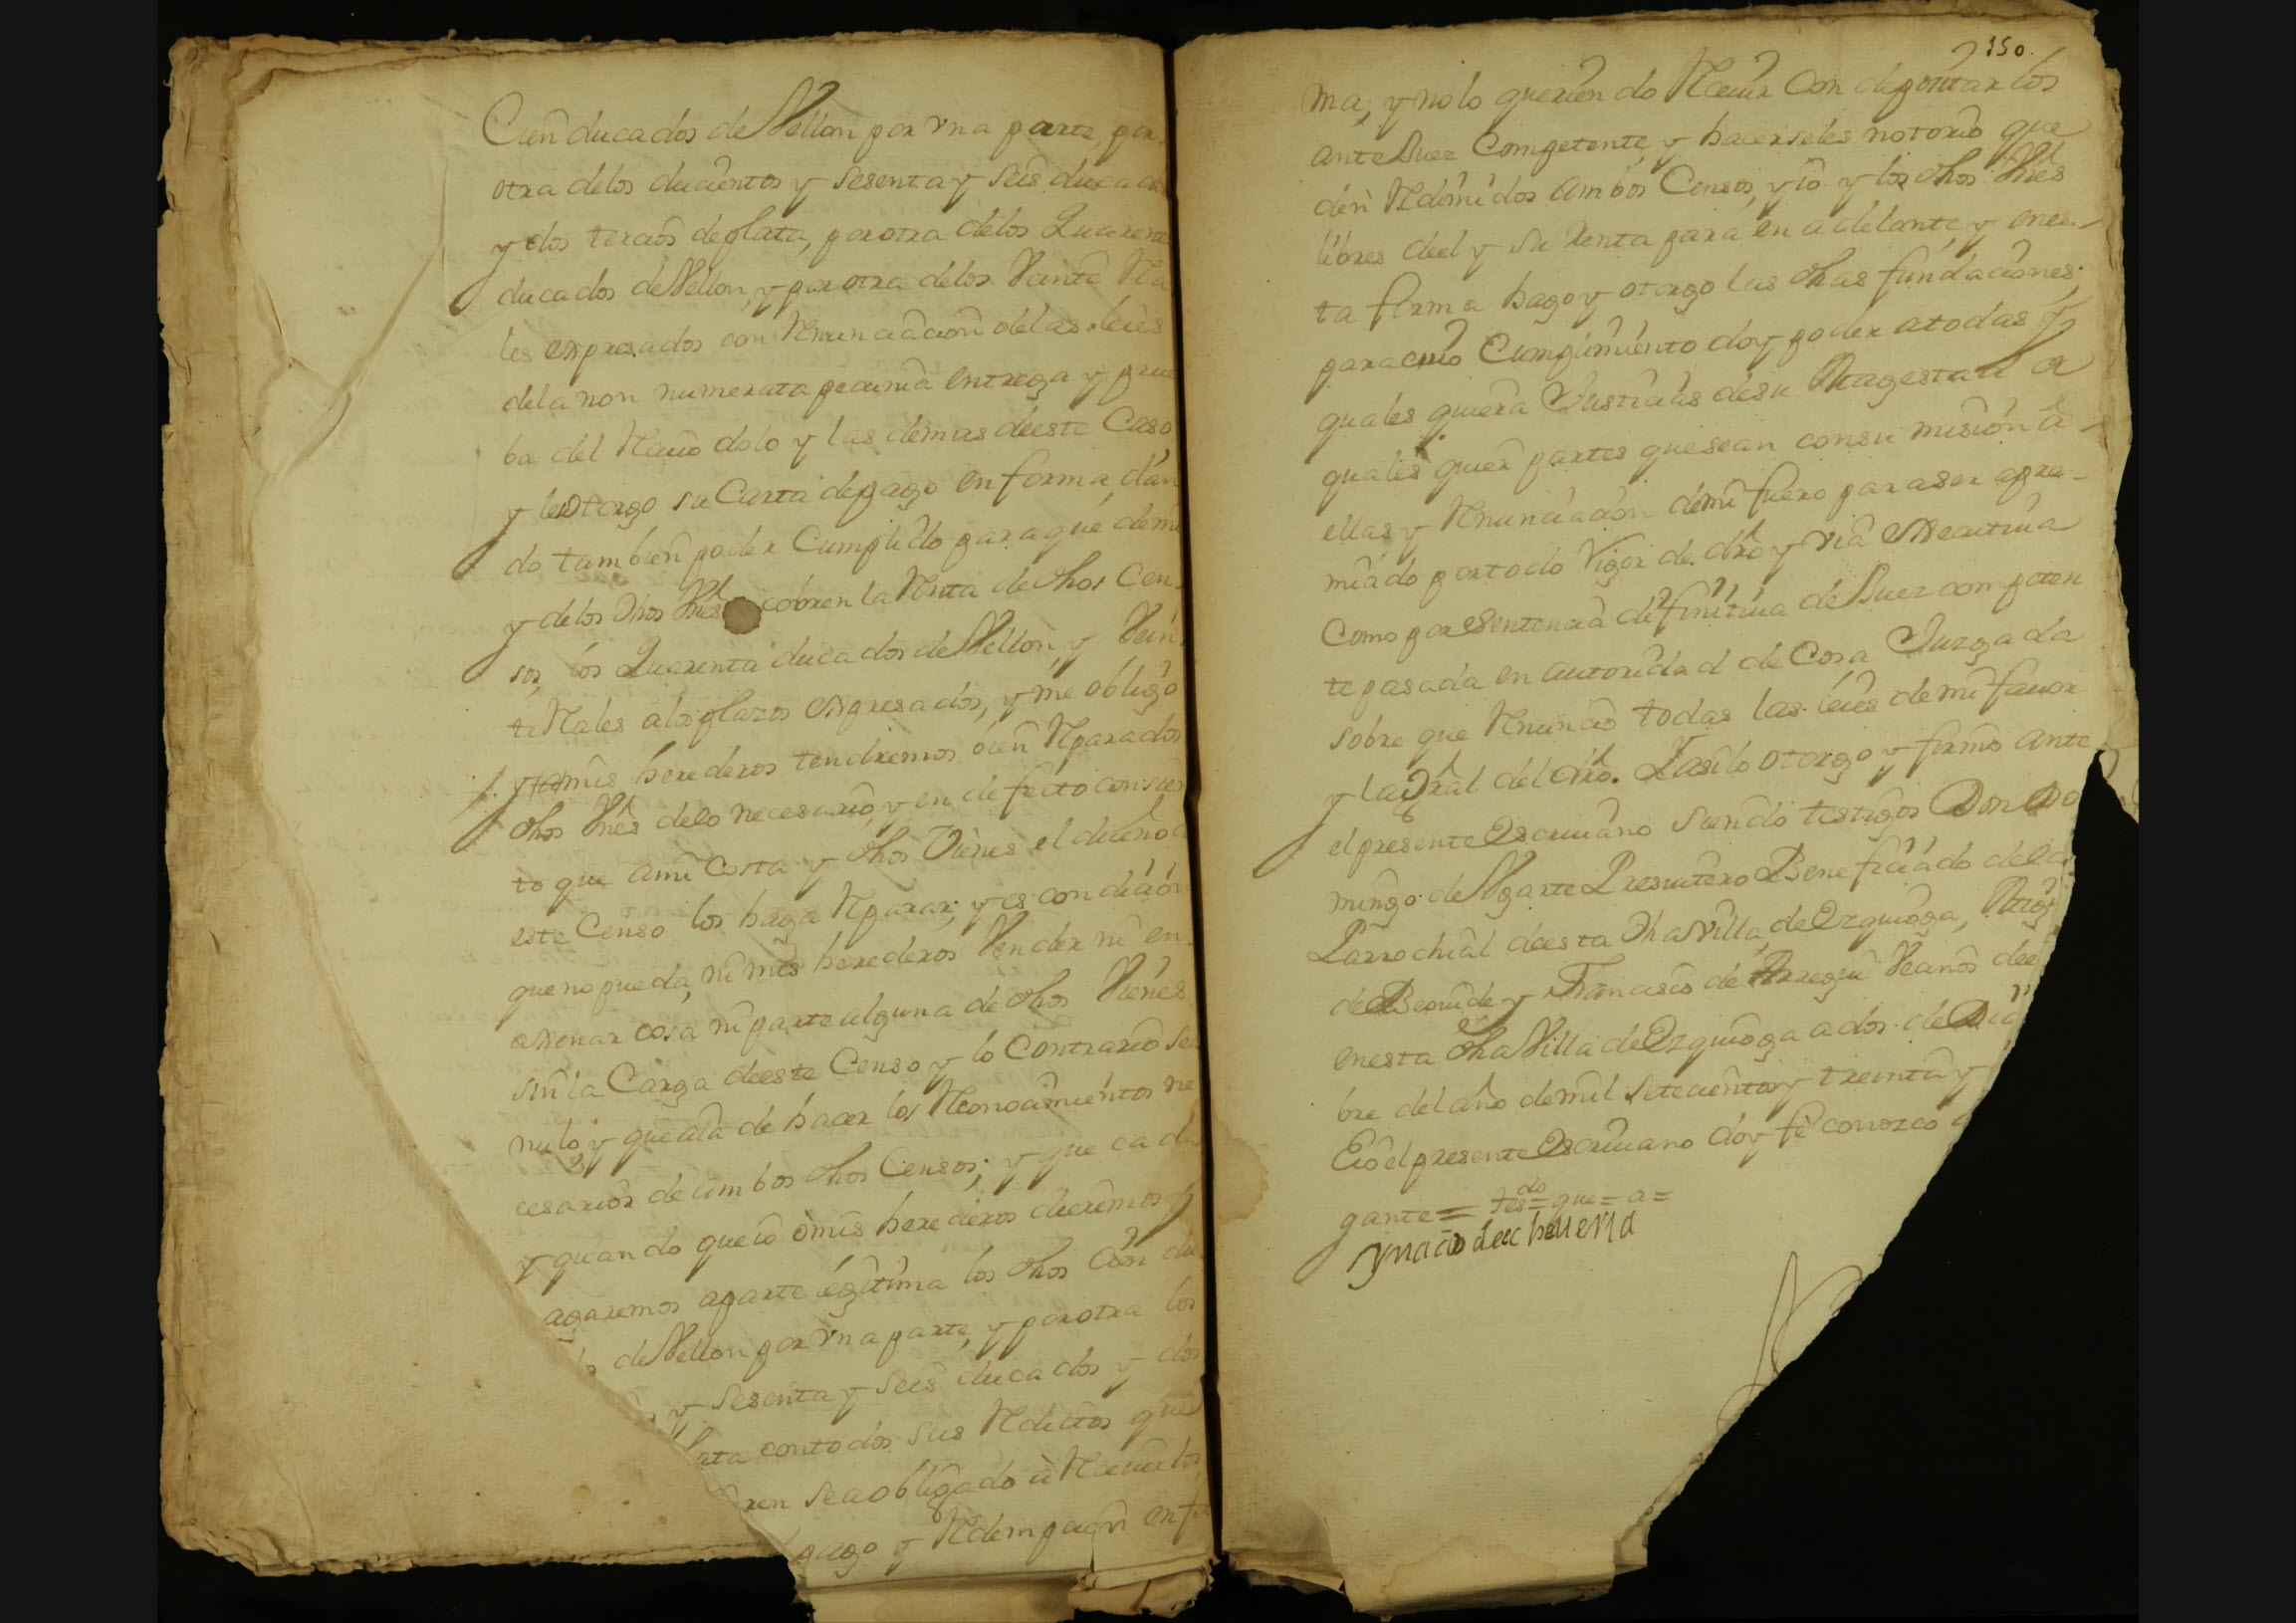 Cien ducados de Vellon por vna parte, por
otra delos ducientos y sesenta y seis ducados
y dos tercios de plata, por otra delos Quarenta
ducados de Vellon, y por otra delos Veinte Rea
les expresados con Renunciacion delas leies
dela non numerata pecunia entrega y prue
ba del Recivo dolo y las demas deeste Caso
y les otorgo su Carta de pago en forma, dan
do tambien poder Cumplido para que demi
y delos dhos Vnes cobren la Renta de dhos Cen
sos, los Quarenta ducados de Vellon, y Vein
te Reales alos plazos expresados, y me obligo
y mis herederos tendremos bien Reparados
dhos Vnes delo necesario, y en defecto consien
to que ami Costa y dhos Vienes el dueño d
este Censo los haga Reparar; y es condicion
que no pueda, ni mis herederos Vender ni en
axenar cosa ni parte alguna de dhos Vienes
sin la Carga deeste Censo y lo Contrario sea
nulo, y que aia de hacer los Reconocimientos ne
cesarios de ambos dhos Censos; y que cada
y quando que io o mis herederos dieremos y
agaremos aparte legitima los dhos Cien du
de Vellon por vna parte, y por otra los
y sesenta y seis ducados y dos
lata con todos sus Reditos que
ren sea obligado à Recivirlos
pago y Redempcion en for
150.
ma, y no lo queriendo Recivir con depositarlos
ante Juez Competente, y hacerseles notorio que
den Redimidos ambos Censos, y io y los dhos Vnes
libres deel y su Renta para en adelante, y enes-
ta forma hago y otorgo las dhas fundaciones;
para cuio Cumplimiento doy poder a todas y
quales quiera Justicias de su Magestad de
quales quier partes que sean con sumision a
ellas y Renunciacion de mi fuero para ser apre-
miado por todo Vigor de dro y via executiva
Como por sentencia difinitiva de Juez conpeten
te pasada en autoridad de Cosa Juzgada
sobre que Renuncio todas las leies de mi favor
y la Gral del dro. Y asi lo otorgo y firmo ante
el presente Escrivano siendo testigos Don Do
mingo de Vgarte Presvitero Beneficiado dela
Parrochial deesta dha Villa de Ezquioga,
de Beovide y Francisco de Arregui Vecinos dee
enesta dha Villa de Ezquioga a dos de Dici
bre del año de mil setecientos y treinta y
E io el presente Escrivano doy fe conozco
gante = tesdo = que = a =
Ynacio de echeverria